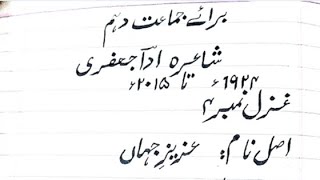 برائے جماعت دہم
شاعرہ ادا جعفری
۱۹۲۴ء تا ۲۰۱۵ء
غزل نمبر ۴
اصل نام: عزیز جہاں